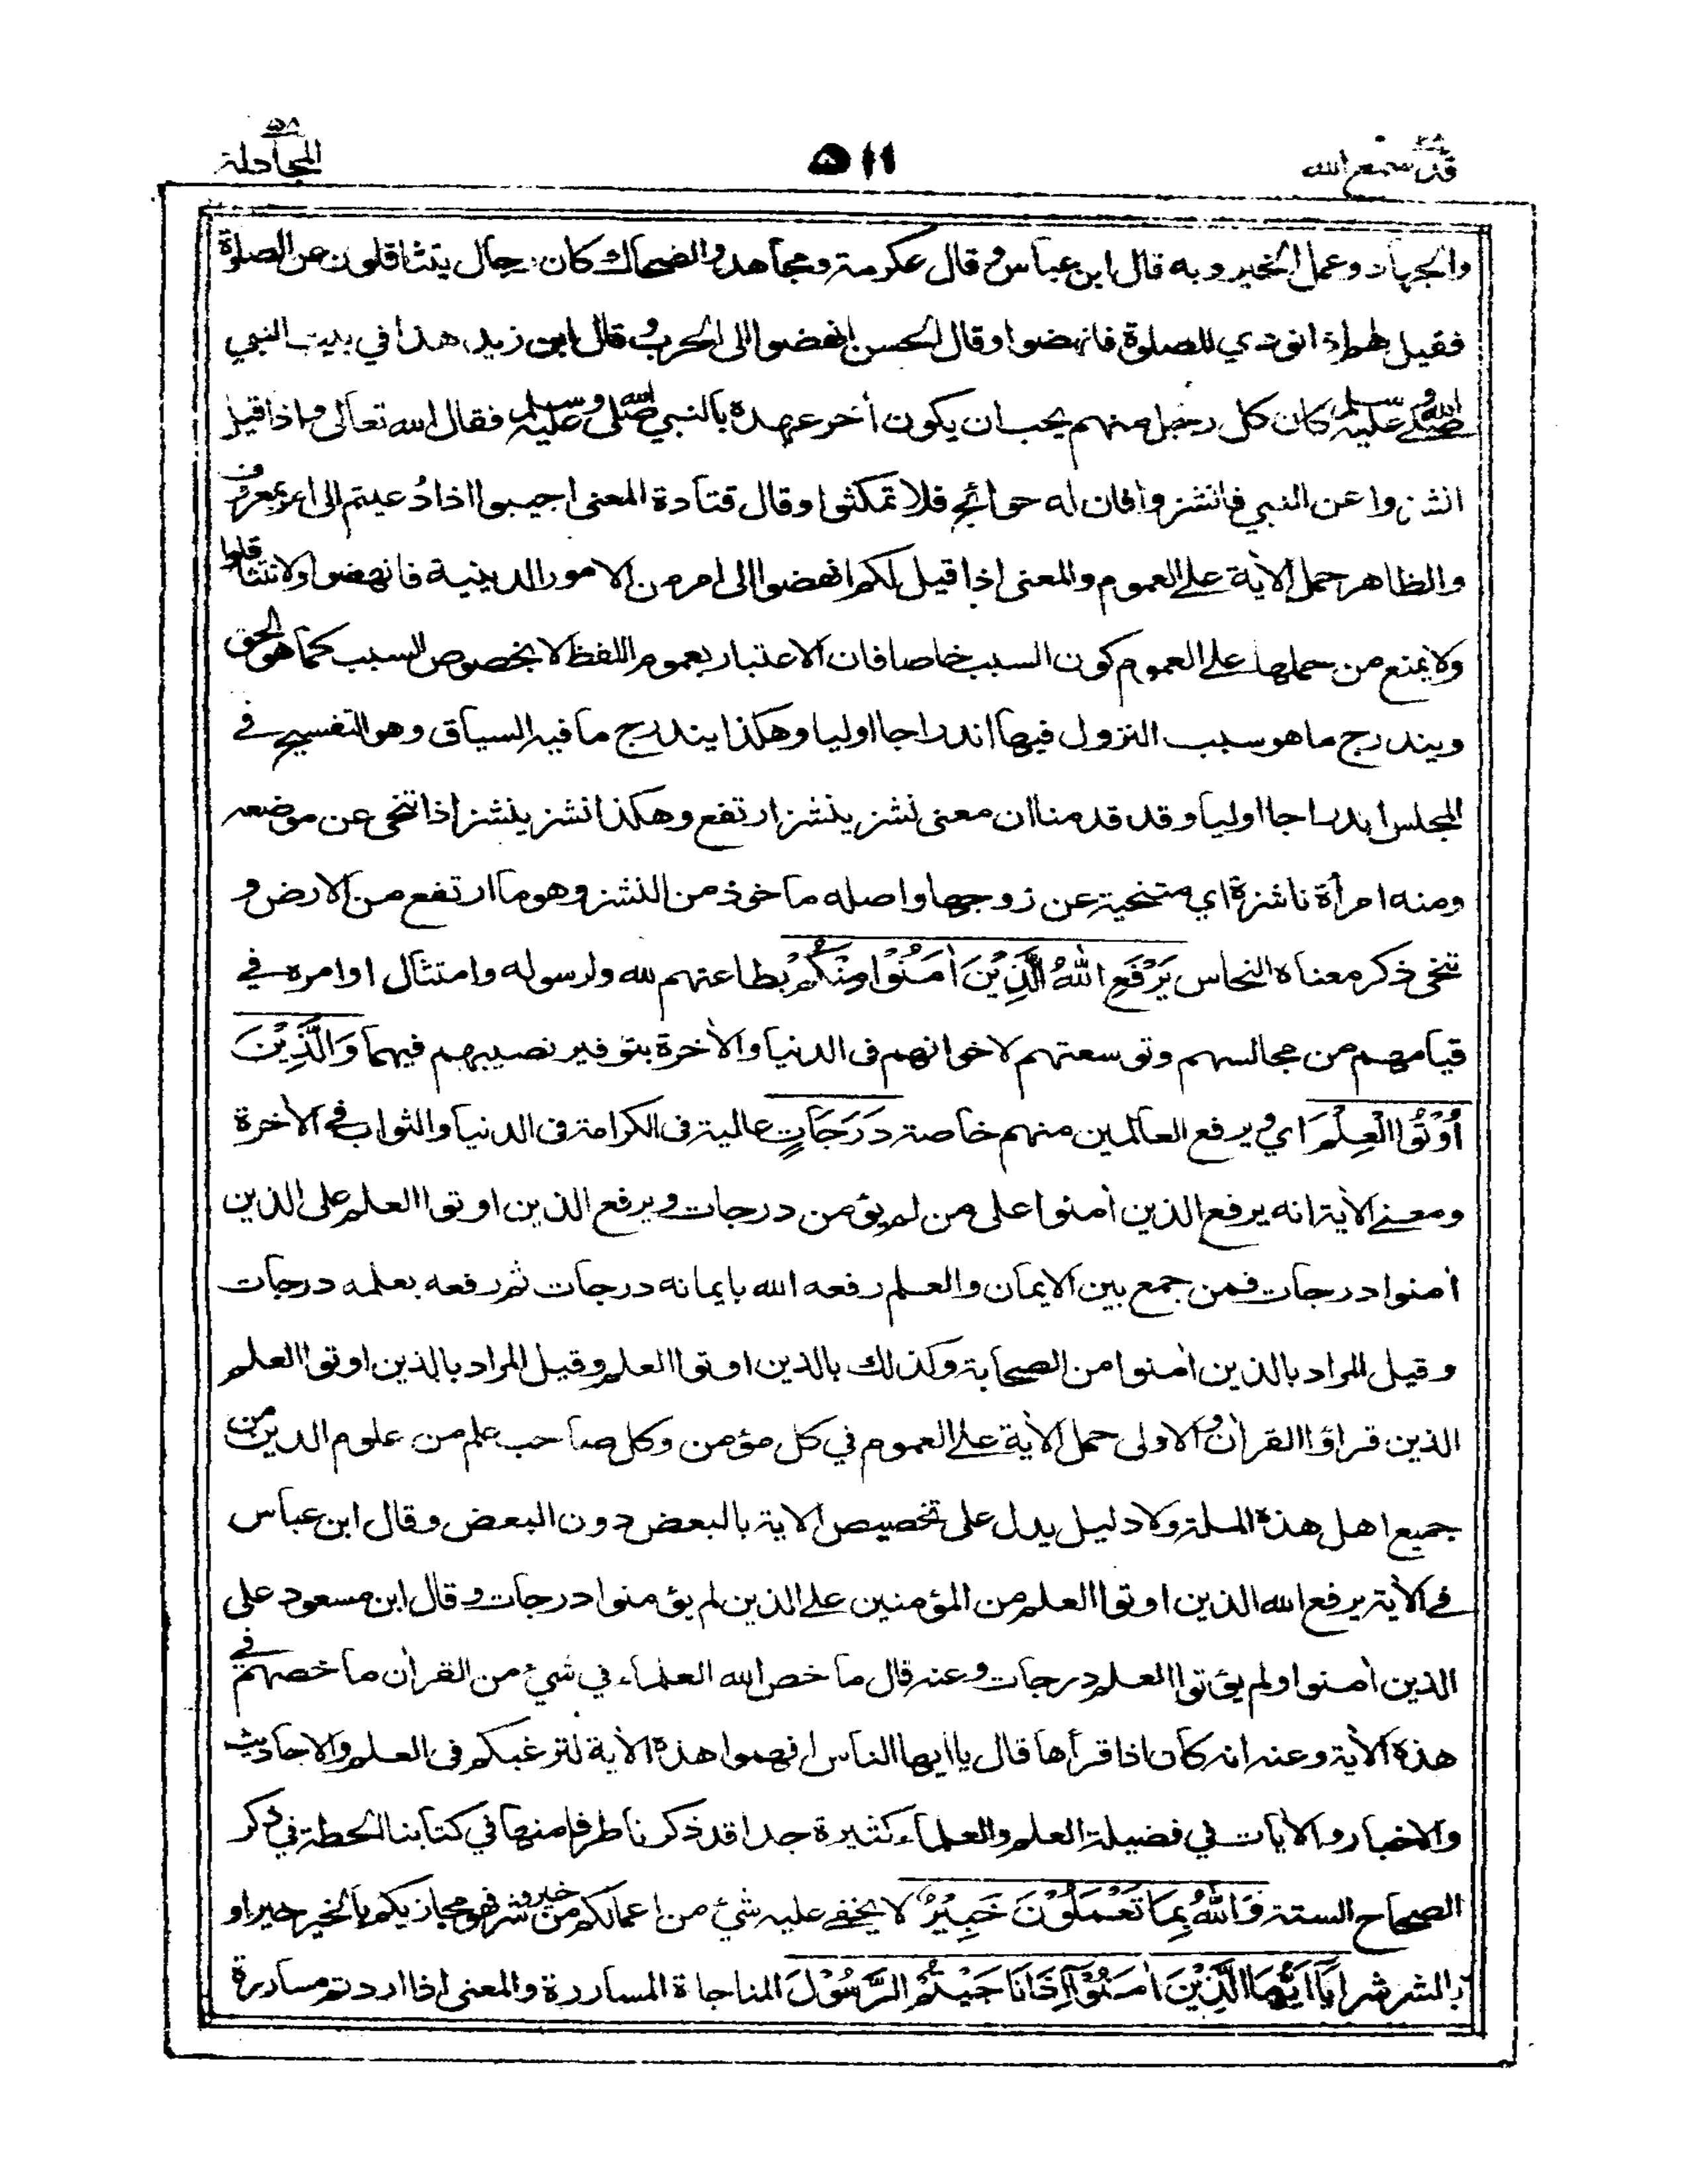 قد سمع الله ٢٨
٥١١
المجادلة ٥٨
والجهاد وعمل الخير وبه قال ابن عباس و قال عكرمة ومجاهد والضحاك كان رجال يتثاقلون عن الصلوة
فقيل لهم اذا نودي للصلوة فانهضوا وقال الحسن انهضوا الى الحرب و قال ابن زيد هذا في بيت النبي
صلى الله عليه وسلم كان كل رجل منهم يحب ان يكون أخر عهده بالنبي صلى الله عليه وسلم فقال الله تعالى واذا قيل
انشزوا عن النبي فانشزوا فان له حوائج فلا تمكثوا وقال قتادة المعنى اجيبوا اذا دُعيتم الى امر بمعروف
والظاهر حمل الأية على العموم والمعنى اذا قيل لكم انهضوا الى امر من الامور الدينية فانهضوا ولا تتثاقلوا
ولا يمنع من حملها على العموم كون السبب خاصا فان الاعتبار بعموم اللفظ لا بخصوص السبب كما هو الحق
ويندرج ما هو سبب النزول فيها اندراجا اوليا وهكذا يندرج ما فيه السياق وهو التفسيح في
المجلس اندراجا اوليا وقد قدمنا ان معنى نشز ينشز ارتفع وهكذا نشز ينشز اذا تنحى عن موضعه
ومنه امرأة ناشزة اي متنحية عن زوجها واصله ماخوذ من النشز وهو ما ارتفع من الارض و
تنحى ذكر معناه النحاس يَرْفَعِ اللّٰهُ الَّذِيْنَ اٰمَنُوْا مِنْكُمْ بطاعتهم لله ولرسوله وامتثال اوامره في
قيامهم من مجالسهم وتوسعتهم لاخوانهم فى الدنيا والأخرة بتوفير نصيبهم فيهما وَالَّذِيْنَ
اُوْتُوا الْعِلْمَ اي ويرفع العالمين منهم خاصة دَرَجَاتٍ عالية فى الكرامة فى الدنيا والثواب في الأخرة
ومعنى الأية انه يرفع الذين أمنوا على من لم يؤمن درجات ويرفع الذين اوتوا العلم على الذين
أمنوا درجات فمن جمع بين الايمان والعلم رفعه الله بايمانه درجات ثم رفعه بعلمه درجات
وقيل المراد بالذين أمنوا من الصحابة وكذلك بالذين اوتوا العلم وقيل المراد بالذين اوتوا العلم
الذين قراؤا القرأن و الاولى حمل الأية على العموم في كل مؤمن وكل صاحب علم من علوم الدين من
جميع اهل هذه الملة ولا دليل يدل على تخصيص الاية بالبعض دون البعض وقال ابن عباس
في الأية يرفع الله الذين اوتوا العلم من المؤمنين على الذين لم يؤمنوا درجات وقال ابن مسعود على
الذين أمنوا ولم يؤتوا العلم درجات وعنه قال ما خص الله العلماء في شيء من القرأن ما خصهم في
هذه الأية وعنه انه كان اذا قرأها قال يا ايها الناس افهموا هذه الأية لترغبكم فى العلم والاحاديث
والاخبار والأيات في فضيلة العلم والعلماء كثيرة جدا قد ذكرنا طرفا منها في كتابنا الحطة في ذكر
الصحاح الستة وَاللّٰهُ بِمَا تَعْمَلُوْنَ خَبِيْرٌ لا يخفى عليه شيء من اعمالكم من خير وشر فهو مجازيكم بالخير خيرا و
بالشر شرا يَا اَيُّهَا الَّذِيْنَ اٰمَنُوْا اِذَا نَاجَيْتُمُ الرَّسُوْلَ المناجاة المساررة والمعنى اذا اردتم مساررة